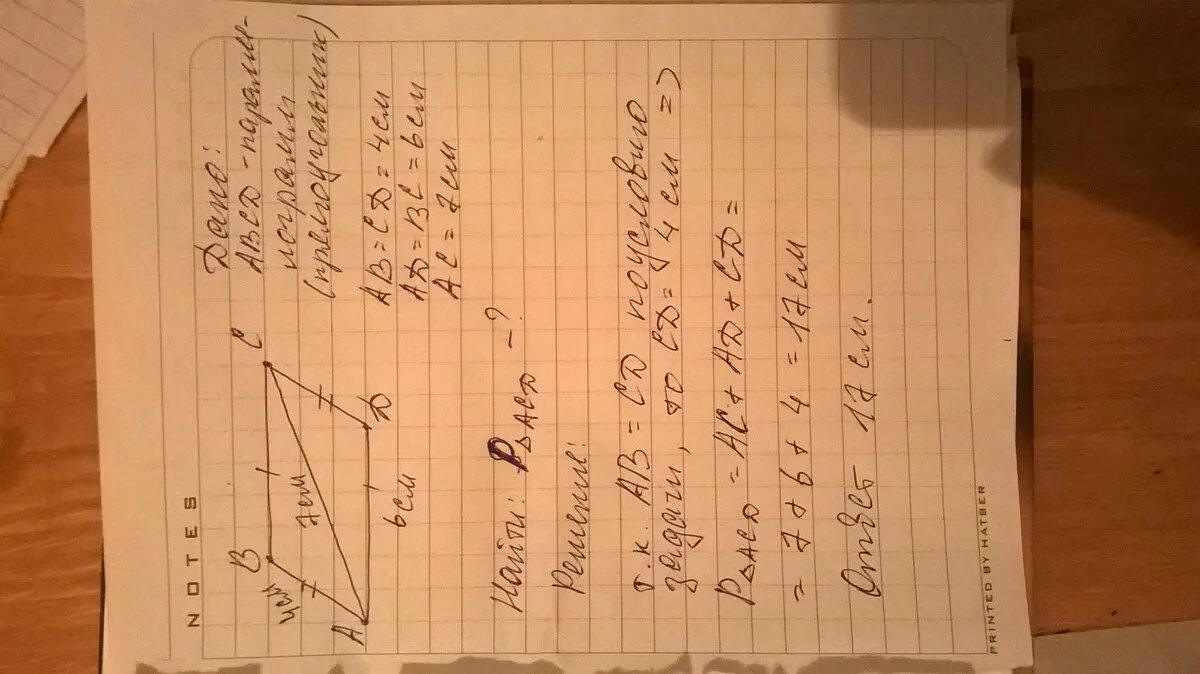 NOTES
B
C
4см
7см
A
D
6см
Дано:
ABCD - паралле-
лограмм
(прямоугольник)
AB = CD = 4см
AD = BC = 6см
AC = 7см
Найти: P△ACD - ?
Решение:
т.к. AB = CD по условию
задачи, то CD = 4 см =>
P△ACD = AC + AD + CD =
= 7 + 6 + 4 = 17см
Ответ 17 см.
PRINTED BY HATBER